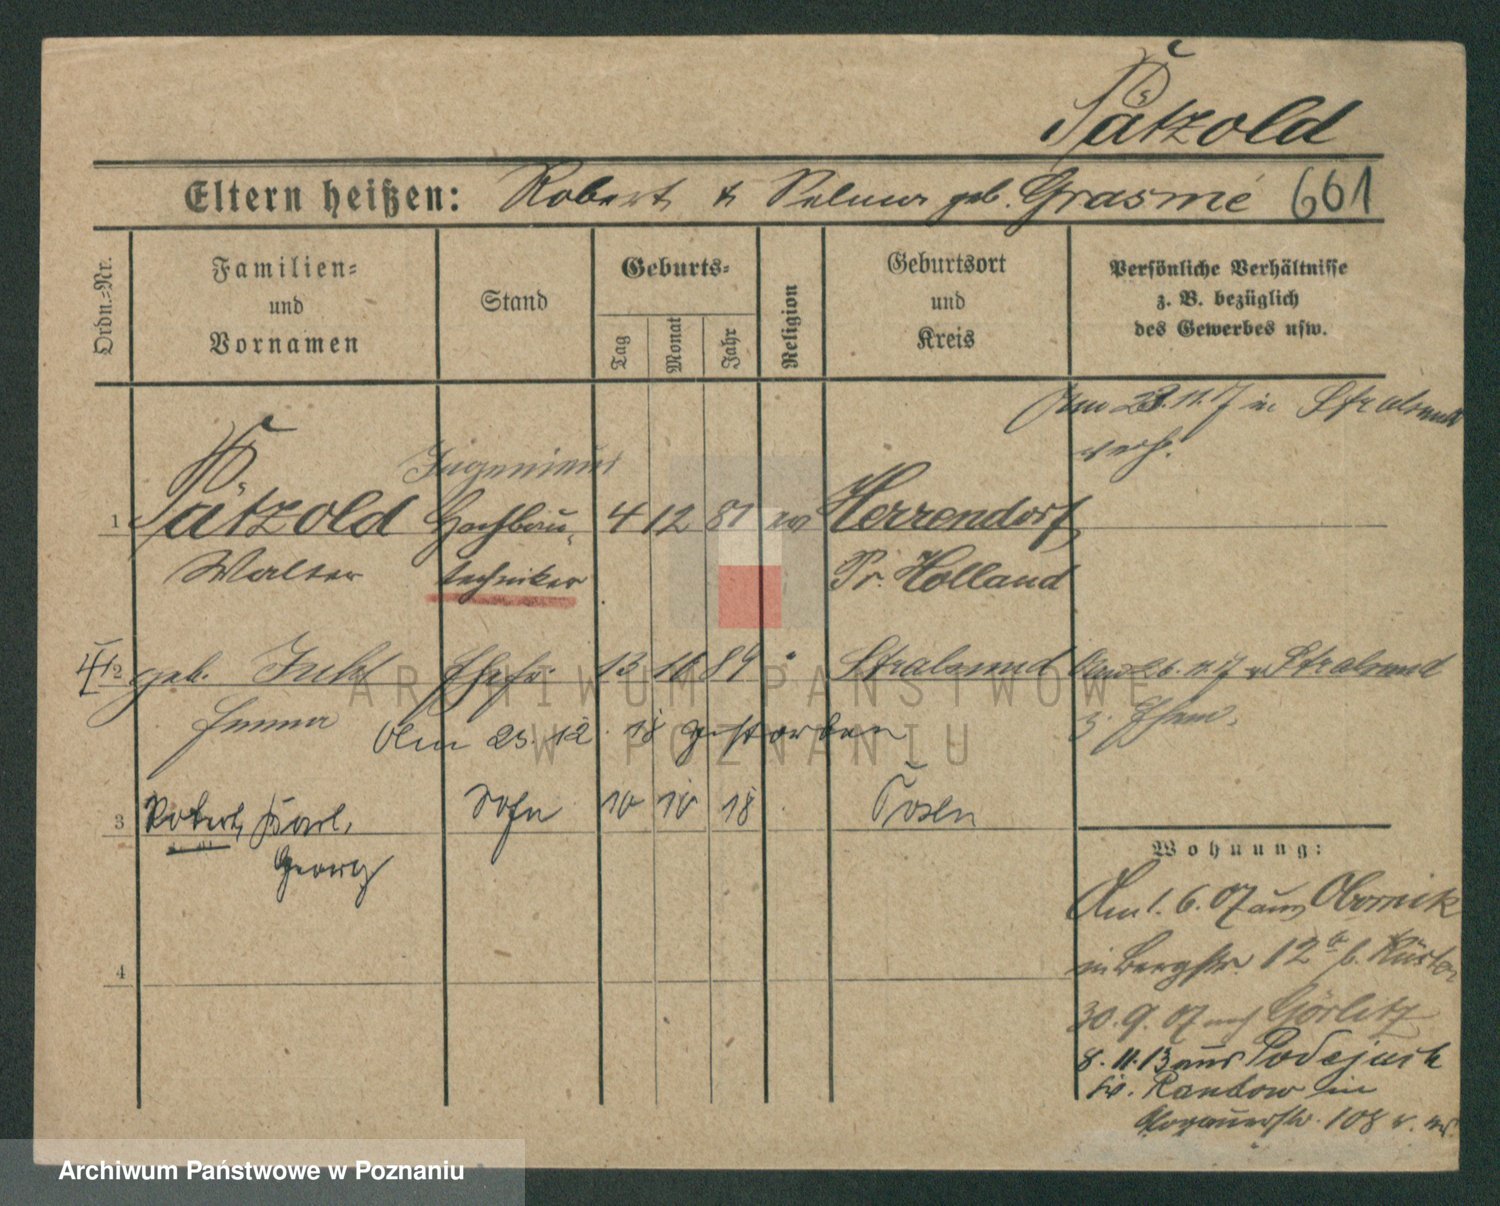 Pätzold
Eltern heißen: Robert & Selma geb. Grasmé 661
Ordn.=Nr.
Familien=
und
Vornamen
Stand
Geburts=
Tag
Monat
Jahr
Religion
Geburtsort
und
Kreis
Persönliche Verhältnisse
z. B. bezüglich
des Gewerbes usw.
Am 23.11.7 in Stralsund
verh.
Ingenieur
1 Pätzold Hochbau= 4 12 81 ev Herrendorf
Walter techniker Pr. Holland
2 geb. Ehefr. 13 10 84 " Stralsund Stralsund
Emma z. Ehem.
Am 23.12.18 gestorben
3 Robert, Karl, Sohn 10 10 18 Posen
Georg
Wohnung:
Am 1.6.07 aus Obornik
in Bergstr. 12 b.
4
30.9.07 nach Görlitz
8.11.13 aus Podejuch
Kr. Randow in
Glogauerstr. 108
ARCHIWUM PAŃSTWOWE
W POZNANIU
Archiwum Państwowe w Poznaniu